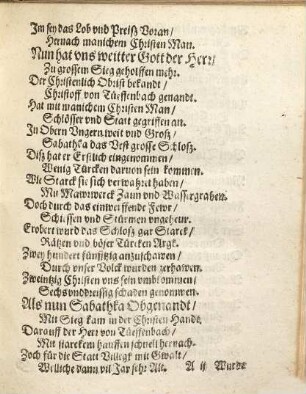 Im sey das Lob vnd Preiß Voran/
Hernach manichem Christen Man.
Nun hat vns weitter Gott der Herr/
Zu grossem Sieg geholffen mehr.
Der Christenlich Obrist bekandt/
Christoff von Tüeffenbach genandt.
Hat mit manichem Christen Man/
Schlösser vnd Statt gegriffen an.
In Obern Vngern weit vnd Groß/
Sabathka das Vest grosse Schloß.
Diß hat er Erstlich eingenommen/
Wenig Türcken daruon sein kommen.
Wie Starck sie sich verwahret haben/
Mit Mawrwerck Zaun vnd Wassergraben.
Doch durch das einwerffende Fewr/
Schiessen vnd Stürmen vngeheur.
Erobert wurd das Schloß gar Starck/
Rätzen vnd böser Türcken Argk.
Zwey hundert fünfftzig anzuschawen/
Durch vnser Volck wurden zerhawen.
Zweintzig Christen vns sein vmbkommen/
Sechs vnd dreissig schaden genommen.
Als nun Sabathka Obgenandt/
Mit Sieg kam in der Christen Handt.
Darauff der Herr von Tüeffenbach/
Mit starckem hauffen schnell hernach.
Zoch für die Statt Villegk mit Gwalt/
Welliche dann vil Jar sehr Alt.
A ij Wurde